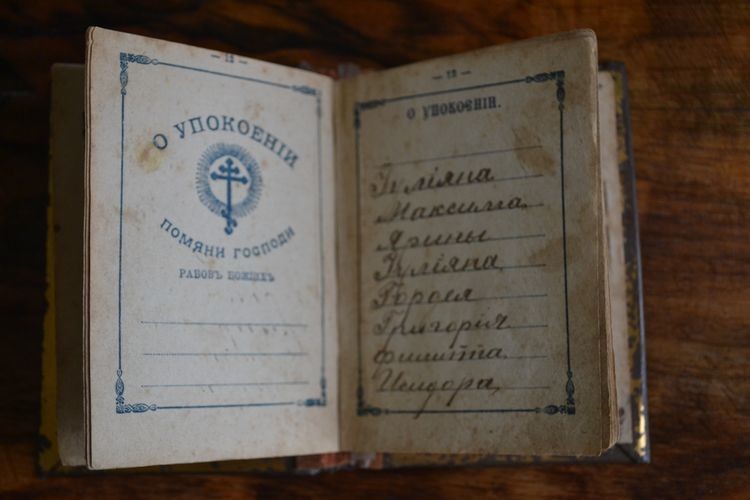 — 12 —
О УПОКОЕНІИ
ПОМЯНИ ГОСПОДИ
РАБОВЪ БОЖІИХЪ
— 13 —
О УПОКОЕНІИ.
Іуліяна
Максима
Ярины
Іуліяна
Григорія
Филиппа
Исидора